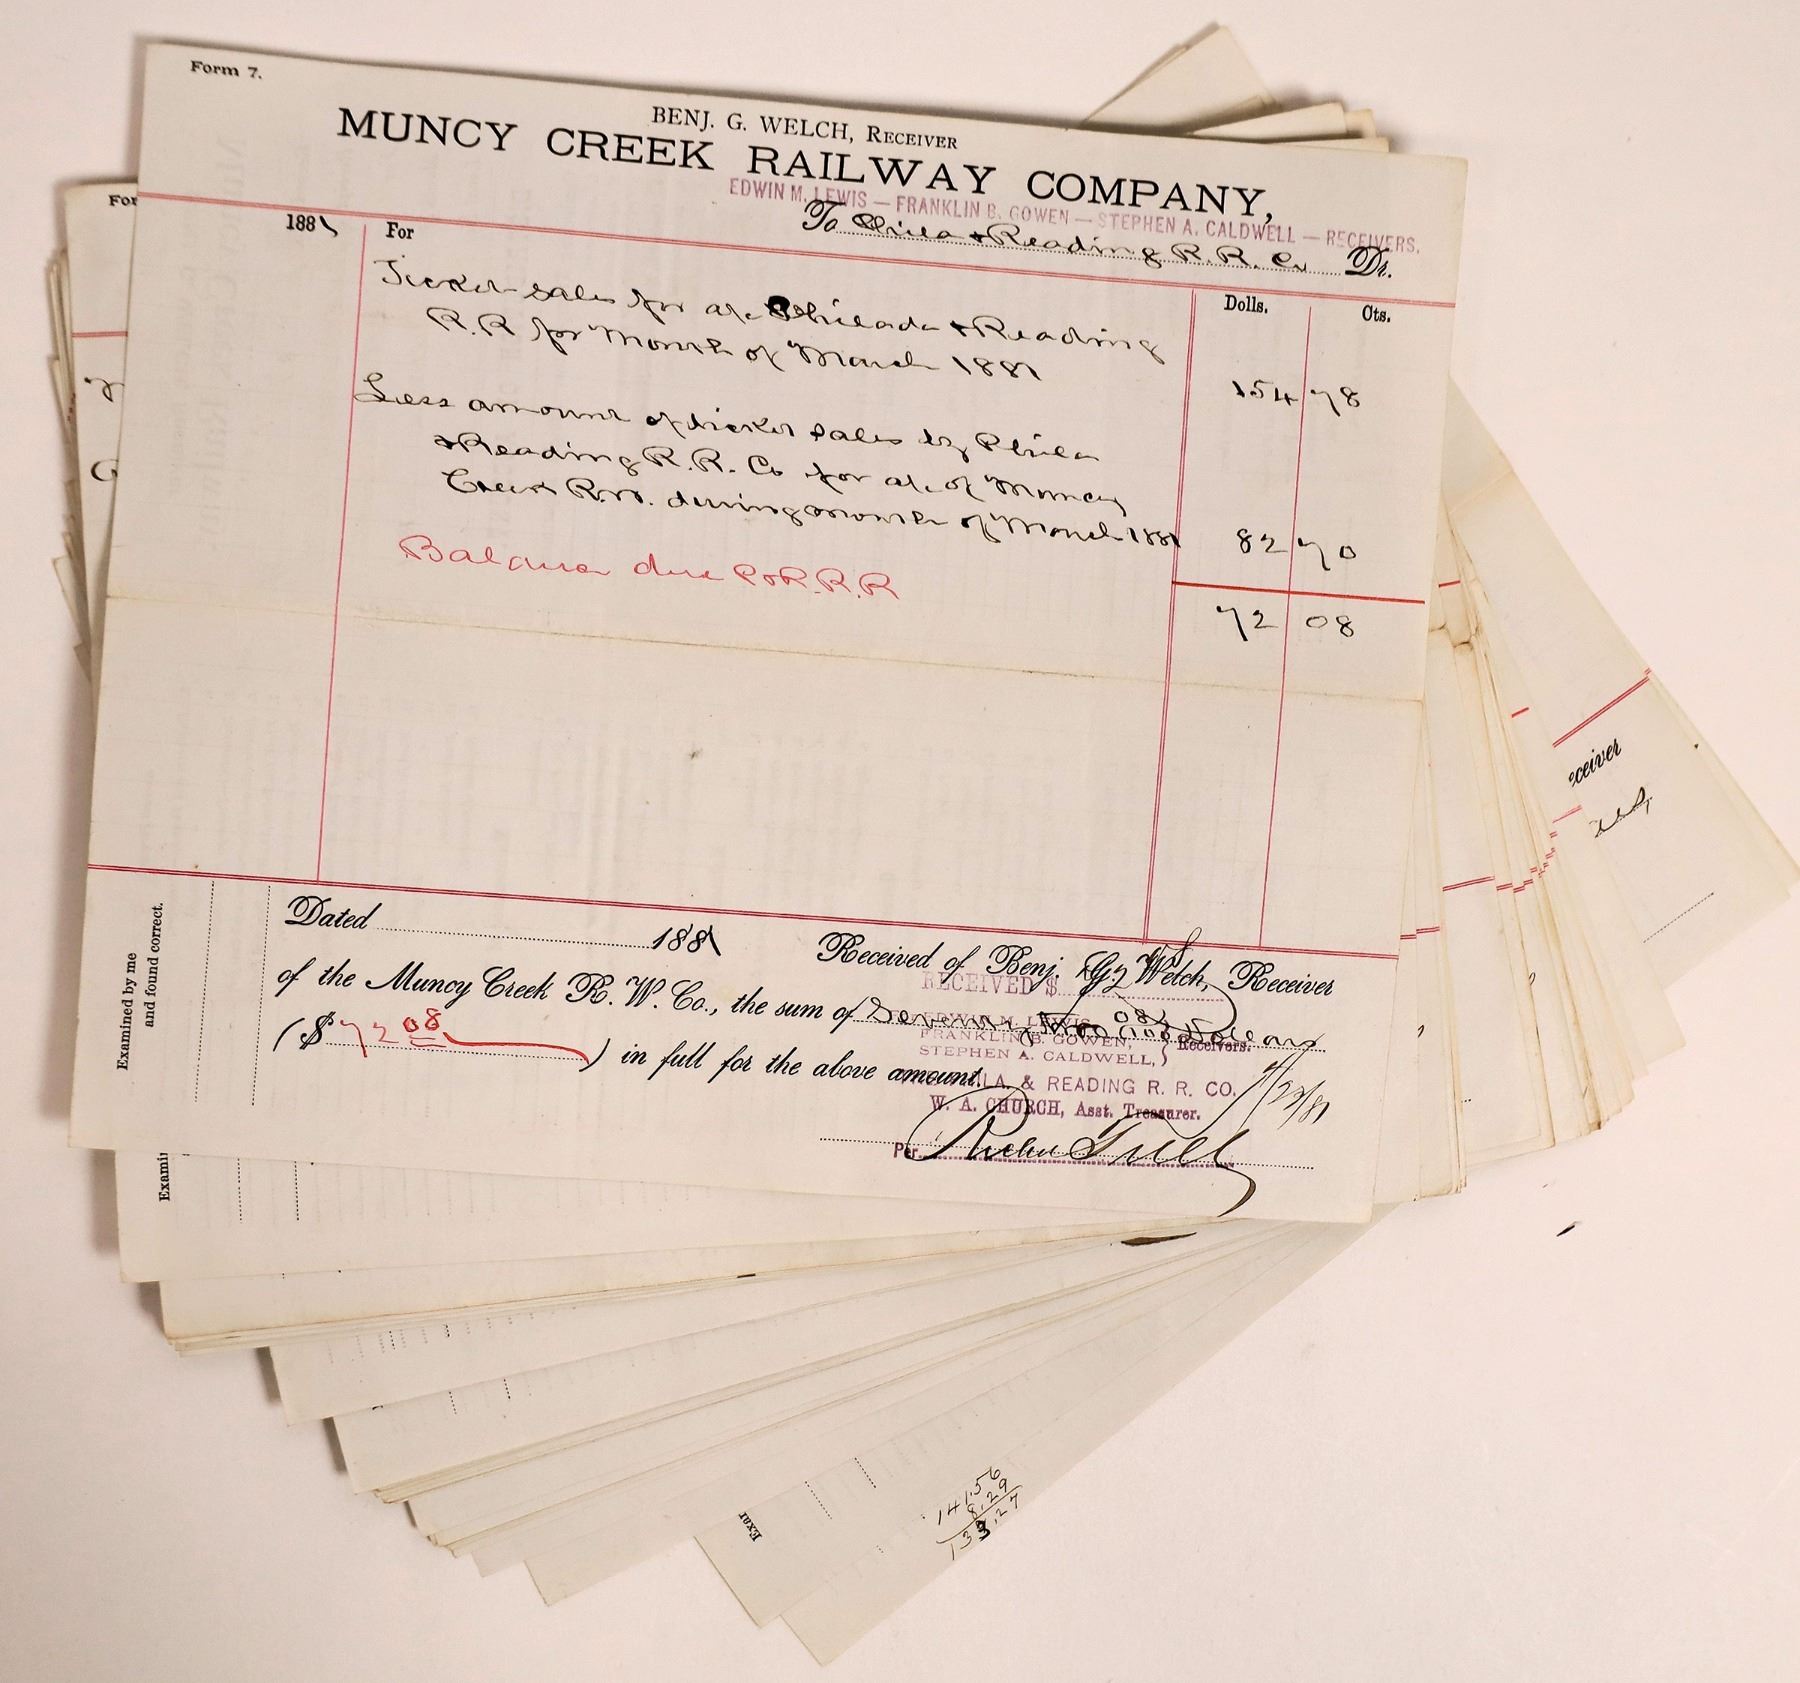 Form 7.
BENJ. G. WELCH, RECEIVER
MUNCY CREEK RAILWAY COMPANY,
EDWIN M. LEWIS — FRANKLIN B. GOWEN — STEPHEN A. CALDWELL — RECEIVERS.
To Phila & Reading R.R. Co Dr.
1881 For
Dolls. Cts.
Ticket sales for a/c Philada & Reading
R.R for Month of March 1881 154 78
Less amount of ticket sales by Phila
& Reading R.R. Co for a/c of Muncy
Creek R.W. during month of March 1881 82 70
Balance due P&R.R.R 72 08
Dated 1881 Received of Benj. G. Welch, Receiver
RECEIVED $ 72 08
of the Muncy Creek R. W. Co., the sum of Seventy Two 08/100 Dollars
EDWIN M. LEWIS,
FRANKLIN B. GOWEN,
STEPHEN A. CALDWELL, Receivers.
($ 72 08 ) in full for the above amount.
& READING R. R. CO.
W. A. CHURCH, Asst. Treasurer.
4/22/81
Per
Examined by me
and found correct.
For
Exami
eceiver
Exar
141.56
8.29
133.27